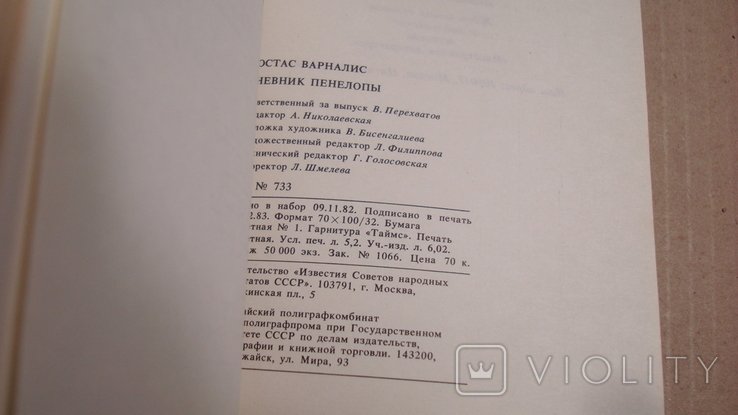 ОСТАС ВАРНАЛИС
НЕВНИК ПЕНЕЛОПЫ
ветственный за выпуск В. Перехватов
дактор А. Николаевская
ложка художника В. Бисенгалиева
дожественный редактор Л. Филиппова
нический редактор Г. Голосовская
рректор Л. Шмелева
№ 733
но в набор 09.11.82. Подписано в печать
2.83. Формат 70×100/32. Бумага
етная № 1. Гарнитура «Таймс». Печать
етная. Усл. печ. л. 5,2. Уч.-изд. л. 6,02.
ж 50 000 экз. Зак. № 1066. Цена 70 к.
тельство «Известия Советов народных
татов СССР». 103791, г. Москва,
кинская пл., 5
йский полиграфкомбинат
полиграфпрома при Государственном
тете СССР по делам издательств,
графии и книжной торговли. 143200,
жайск, ул. Мира, 93
VIOLITY